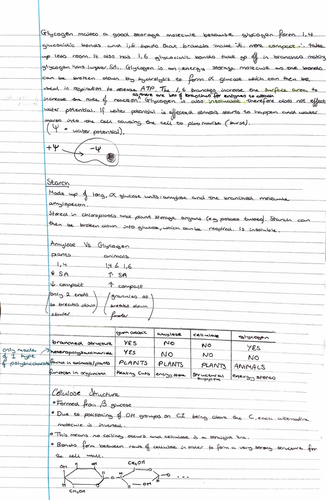 Glycogen makes a good storage molecule because glycogen form 1,4
glycosidic bonds and 1,6 bonds that branch make it more compact ∴ takes
up less room. It also has 1,6 glycosidic bonds that go off in branches making
glycogen have larger SA. Glycogen is an energy storage molecule as the bonds
can be broken down by hydrolysis to form α glucose which can then be
used in respiration to release ATP. The 1,6 branches increase the surface area to
increase the rate of reaction. Glycogen is also insoluble therefore does not effect
water potential. If water potential is effected osmosis starts to happen and water
moves into the cell causing the cell to (burst).
(Ψ = water potential).
+Ψ -Ψ
Starch
Made up of long, α glucose units: amylose and the branched molecule
amylopectin.
Stored in chloroplasts and plant storage organs (eg potato tubers). Starch can
then be broken down into glucose, which can be respired. Is insoluble.
Amylose Vs Glycogen
plants animals
1,4 1,4 & 1,6
↓ SA ↑ SA
↓ compact ↑ compact
only 2 ends
so breaks down breaks down
slower faster
amylose cellulose glycogen
branched structure YES NO NO YES
heteropolysaccharide YES NO NO NO
found in animals/plants PLANTS PLANTS PLANTS ANIMALS
function in organism energy store structural energy stores
Cellulose Structure
• Formed from β glucose
• Due to positioning of OH groups on C1 being above the C, each alternative
molecule is inverted.
• This means no coiling occurs and cellulose is a straight line.
• Bonds form between rows of cellulose in order to form a very strong structure for
the cell wall.
OH CH₂OH
O
OH
CH₂OH